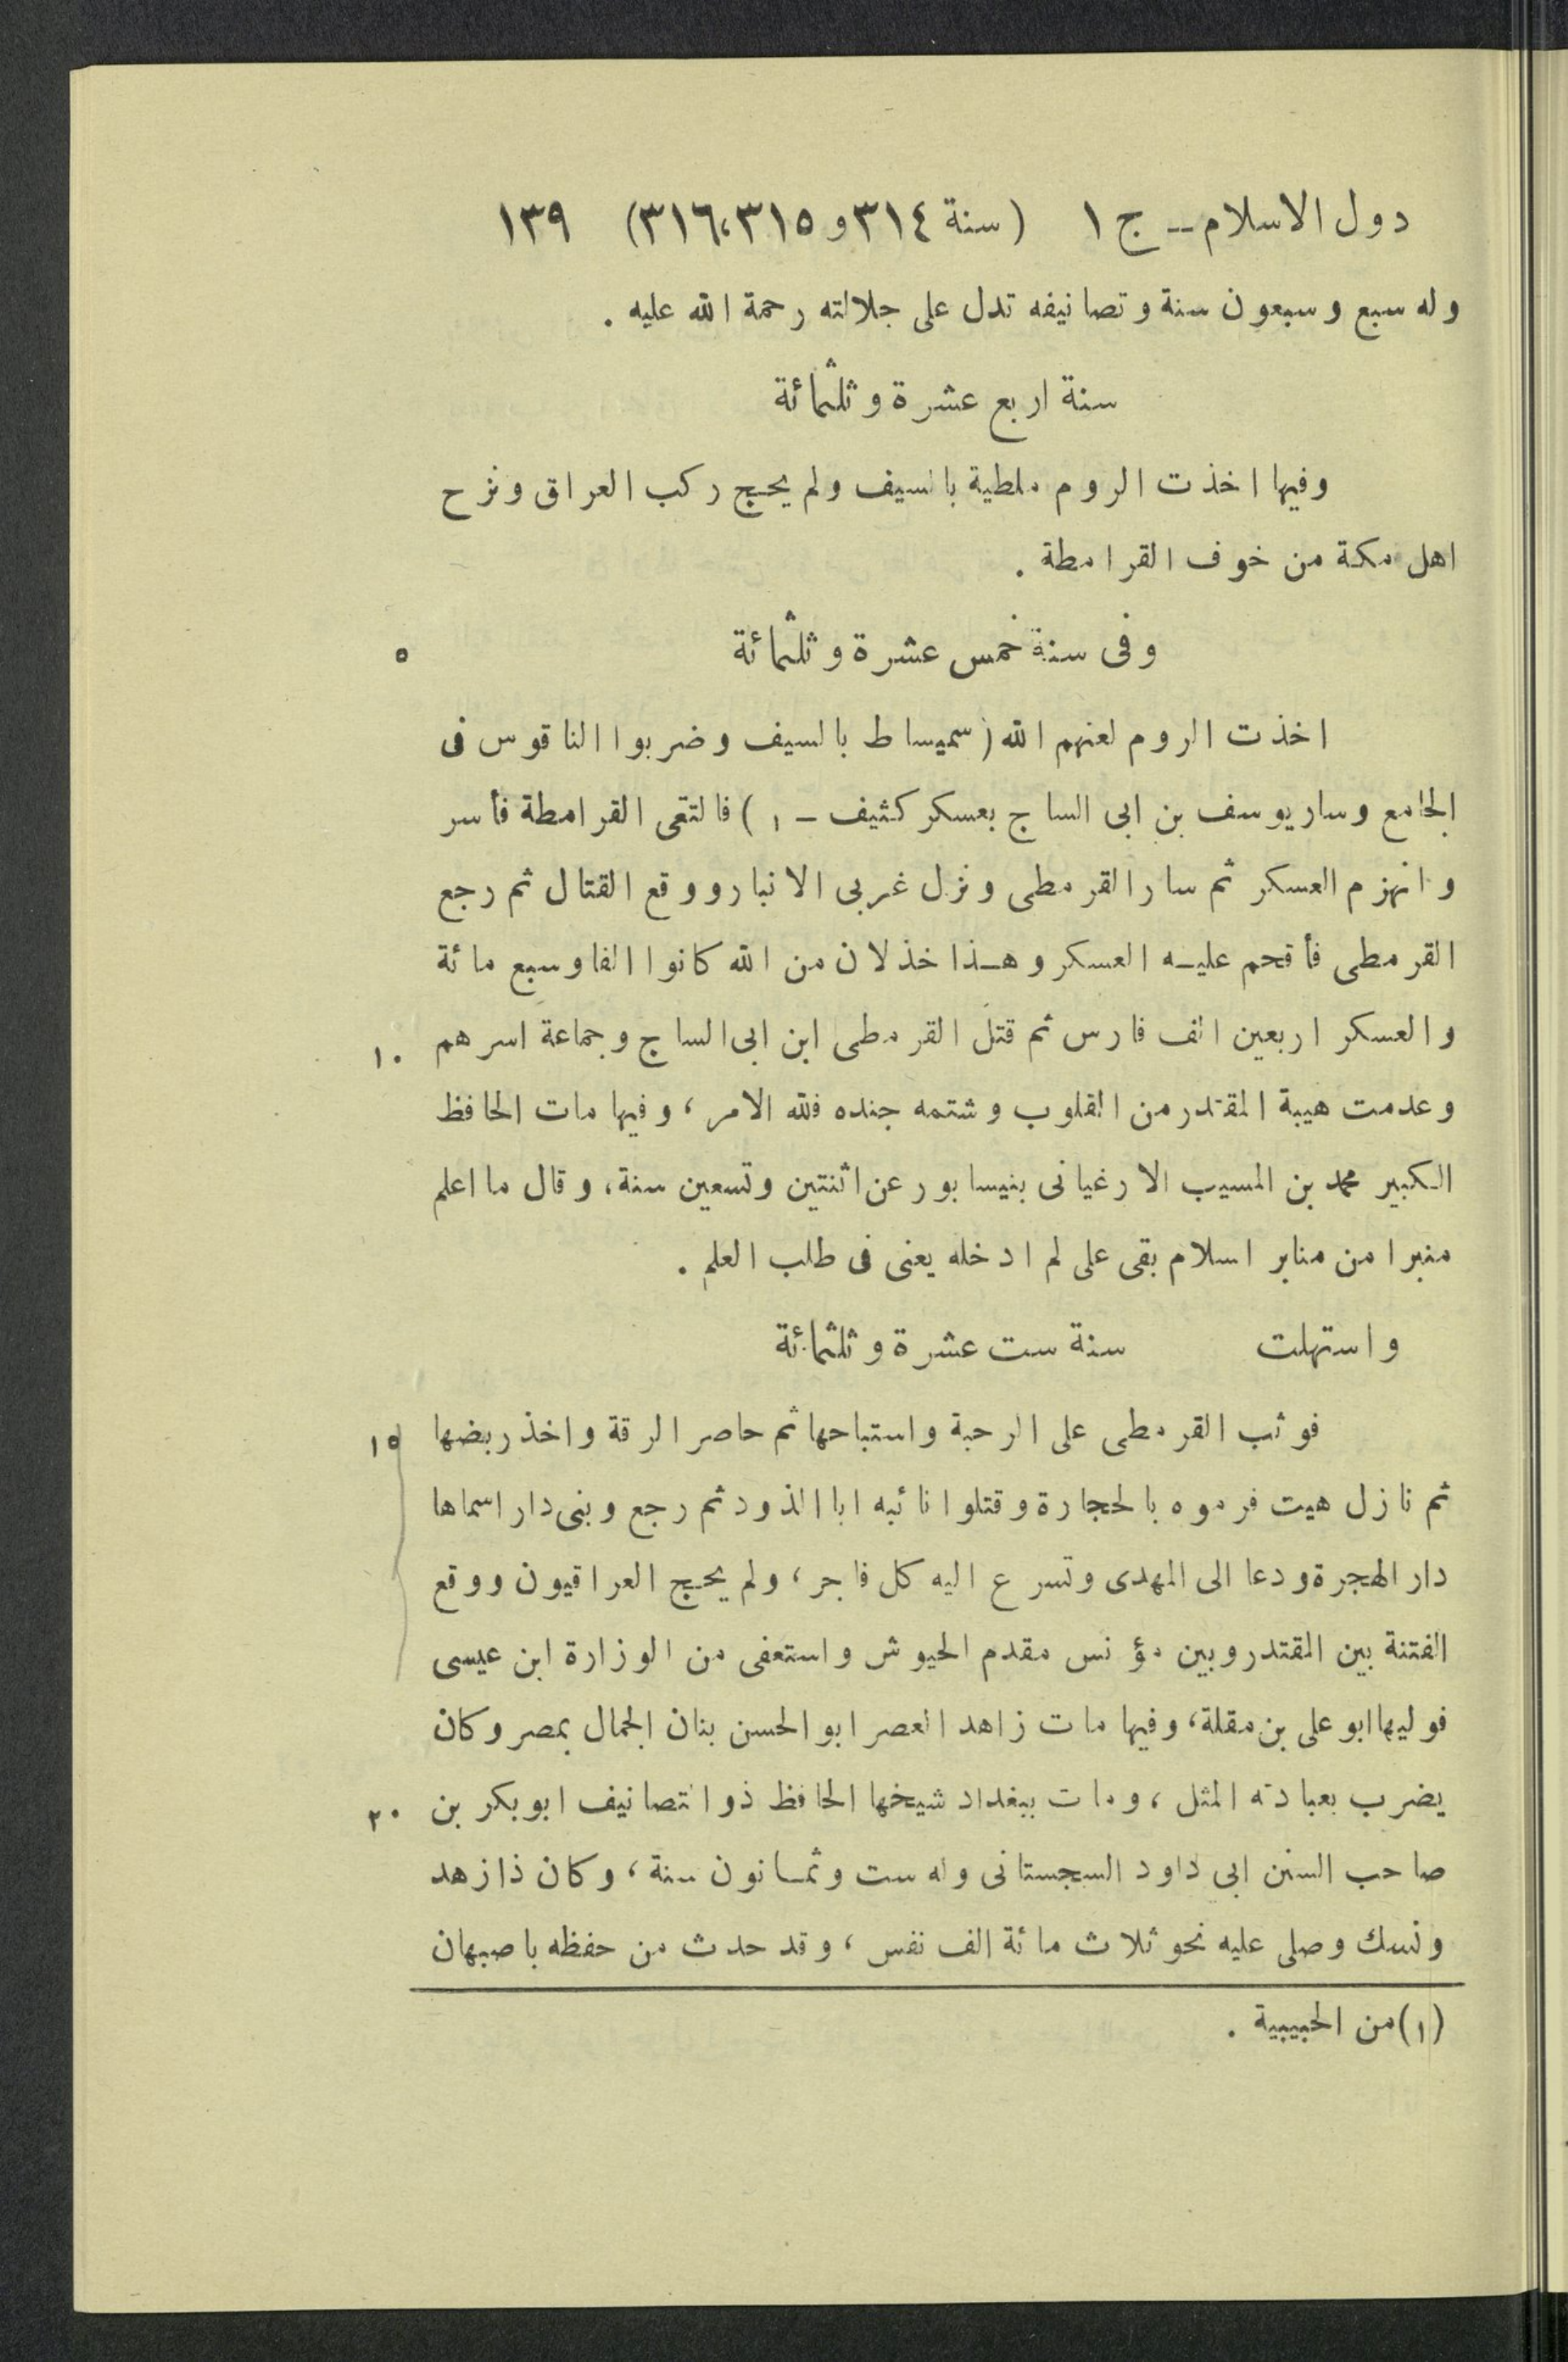 دول الاسلام -- ج ١ (سنة ٣١٤ و ٣١٥، ٣١٦) ١٣٩
وله سبع وسبعون سنة وتصانيفه تدل على جلالته رحمة الله عليه .
سنة اربع عشرة وثلثمائة
وفيها اخذت الروم ملطية بالسيف ولم يحج ركب العراق ونزح
اهل مكة من خوف القرامطة .
وفى سنة خمس عشرة وثلثمائة ٥
اخذت الروم لعنهم الله (سميساط بالسيف وضربوا الناقوس فى
الجامع وسار يوسف بن ابى الساج بعسكر كثيف - ١) فالتقى القرامطة فأسر
وانهزم العسكر ثم سار القرمطى ونزل غربى الانبار ووقع القتال ثم رجع
القرمطى فأقحم عليه العسكر وهذا خذلان من الله كانوا الفا وسبع مائة
والعسكر اربعين الف فارس ثم قتل القرمطى ابن ابى الساج وجماعة اسرهم ١٠
وعدمت هيبة المقتدر من القلوب وشتمه جنده فلله الامر، وفيها مات الحافظ
الكبير محمد بن المسيب الارغيانى بنيسابور عن اثنتين وتسعين سنة، وقال ما اعلم
منبرا من منابر اسلام بقى على لم ادخله يعنى فى طلب العلم .
واستهلت سنة ست عشرة وثلثمائة
فوثب القرمطى على الرحبة واستباحها ثم حاصر الرقة واخذ ربضها ١٥
ثم نازل هيت فرموه بالحجارة وقتلوا نائبه ابا الذود ثم رجع وبنى دار اسماها
دار الهجرة ودعا الى المهدى وتسرع اليه كل فاجر، ولم يحج العراقيون ووقع
الفتنة بين المقتدر وبين مؤنس مقدم الجيوش واستعفى من الوزارة ابن عيسى
فوليها ابو على بن مقلة، وفيها مات زاهد العصر ابو الحسن بنان الجمال بمصر وكان
يضرب بعبادته المثل، ومات ببغداد شيخها الحافظ ذو التصانيف ابو بكر بن ٢٠
صاحب السنن ابى داود السجستانى وله ست وثمانون سنة، وكان ذا زهد
ونسك وصلى عليه نحو ثلاث مائة الف نفس، وقد حدث من حفظه باصبهان
(١) من الحبيبية .